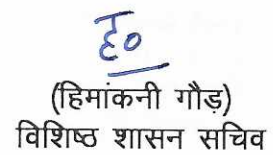 ह०
(हिमांकनी गौड़)
विशिष्ठ शासन सचिव